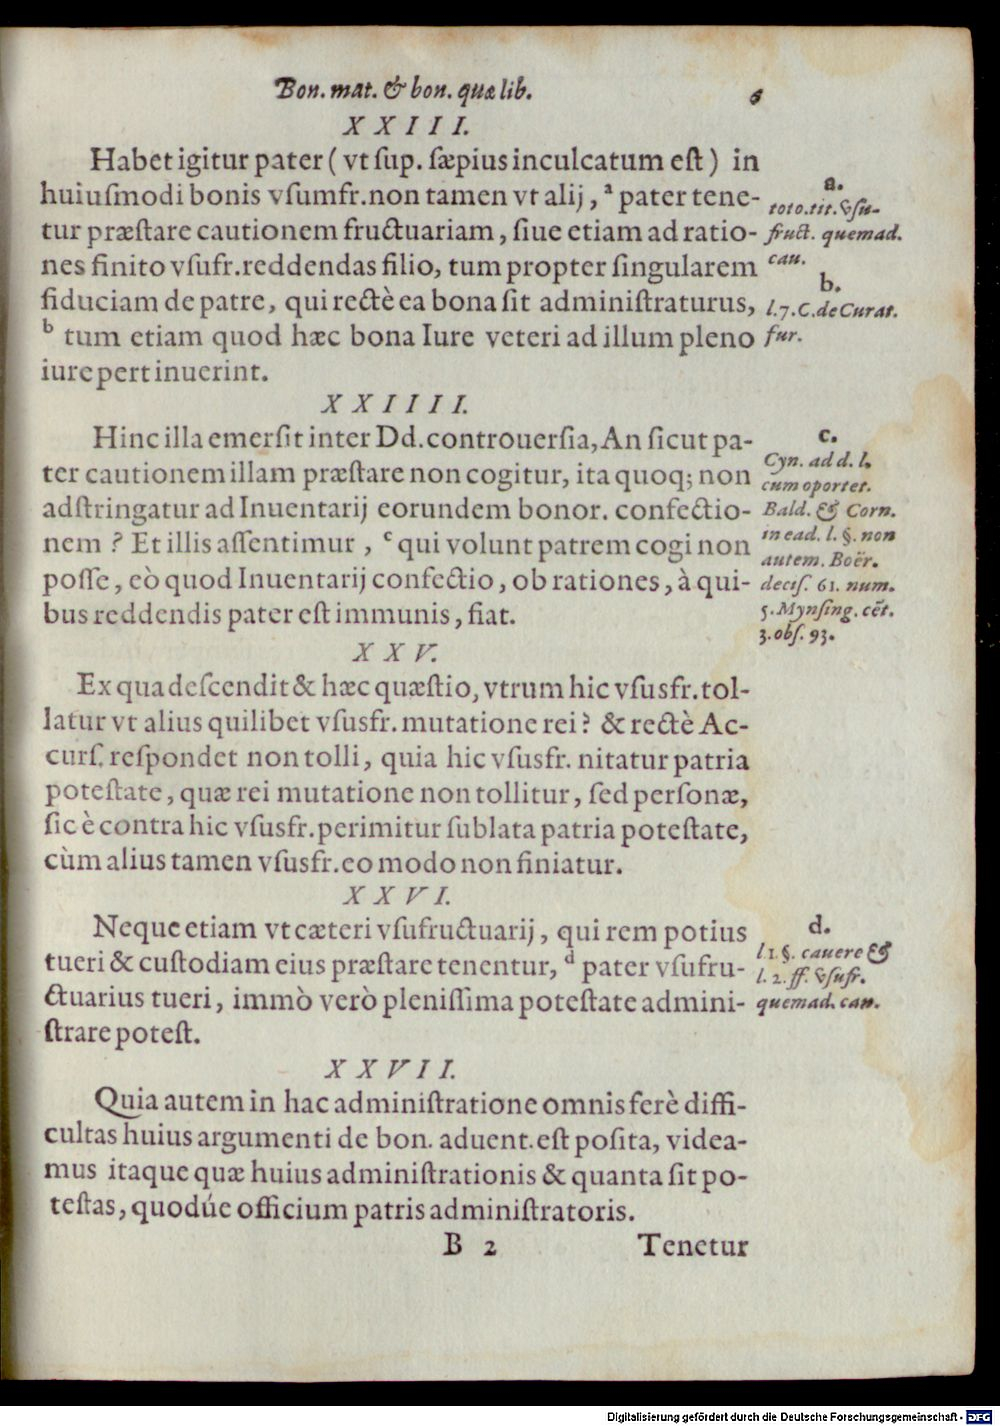 Bon. mat. & bon. quæ lib. 6
XXIII.
Habet igitur pater ( vt sup. sæpius inculcatum est ) in
huiusmodi bonis vsumfr. non tamen vt alij , ᵃ pater tene-
tur præstare cautionem fructuariam , siue etiam ad ratio-
nes finito vsufr. reddendas filio, tum propter singularem
fiduciam de patre, qui rectè ea bona sit administraturus,
ᵇ tum etiam quod hæc bona Iure veteri ad illum pleno
iure pertinuerint.
a.
toto. tit. vsu-
fruct. quemad.
cau.
b.
l. 7. C. de Curat.
fur.
XXIIII.
Hinc illa emersit inter Dd. controuersia, An sicut pa-
ter cautionem illam præstare non cogitur, ita quoq; non
adstringatur ad Inuentarij eorundem bonor. confectio-
nem ? Et illis assentimur , ᶜ qui volunt patrem cogi non
posse, eò quod Inuentarij confectio, ob rationes, à qui-
bus reddendis pater est immunis, fiat.
c.
Cyn. ad d. l.
cum oportet.
Bald. & Corn.
in ead. l. §. non
autem. Boër.
decis. 61. num.
5. Mynsing. cẽt.
3. obs. 93.
XXV.
Ex qua descendit & hæc quæstio, vtrum hic vsusfr. tol-
latur vt alius quilibet vsusfr. mutatione rei? & rectè Ac-
curs. respondet non tolli, quia hic vsusfr. nitatur patria
potestate, quæ rei mutatione non tollitur, sed personæ,
sic è contra hic vsusfr. perimitur sublata patria potestate,
cùm alius tamen vsusfr. eo modo non finiatur.
XXVI.
Neque etiam vt cæteri vsufructuarij, qui rem potius
tueri & custodiam eius præstare tenentur, ᵈ pater vsufru-
ctuarius tueri, immò verò plenissima potestate admini-
strare potest.
d.
l. 1. §. cauere &
l. 2. ff. vsufr.
quemad. cau.
XXVII.
Quia autem in hac administratione omnis ferè diffi-
cultas huius argumenti de bon. aduent. est posita, videa-
mus itaque quæ huius administrationis & quanta sit po-
testas, quodúe officium patris administratoris.
B 2 Tenetur
Digitalisierung gefördert durch die Deutsche Forschungsgemeinschaft - DFG